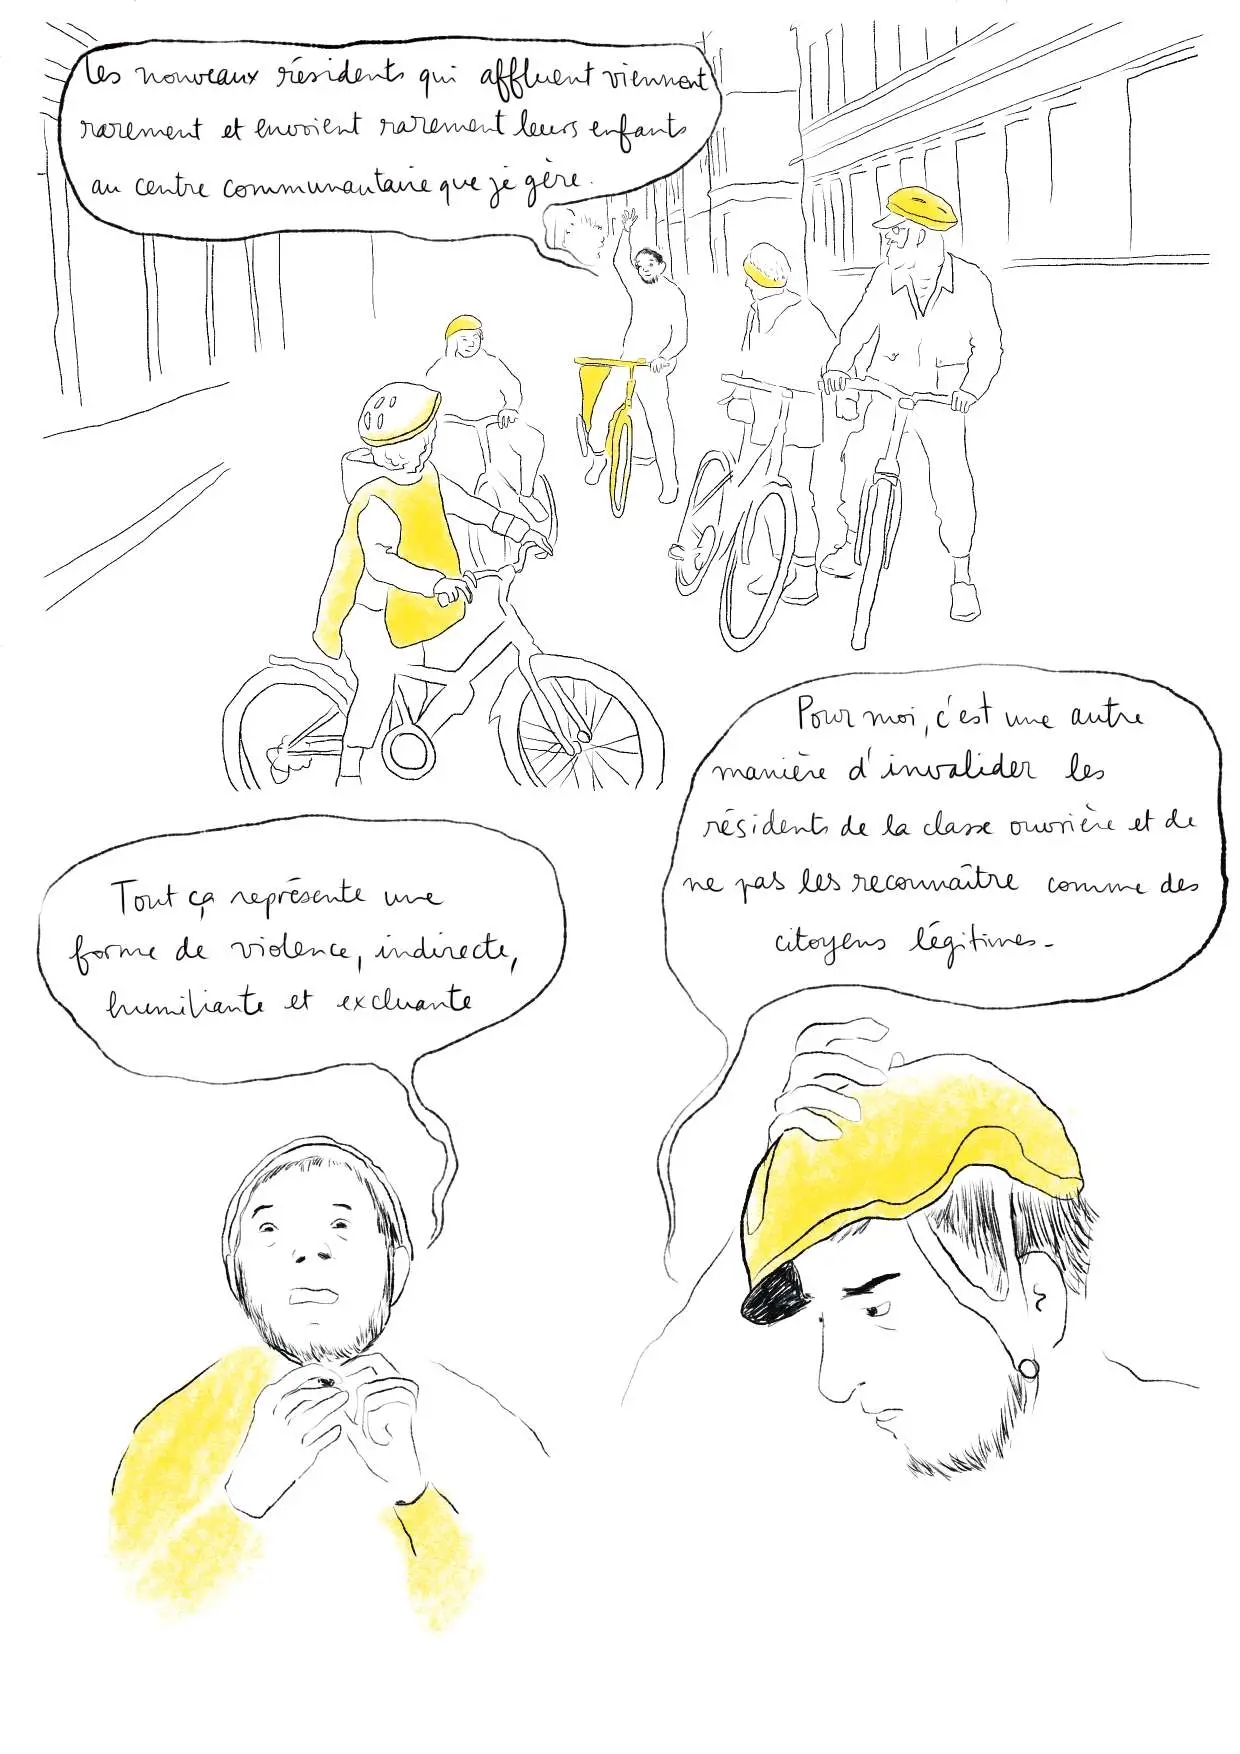 Les nouveaux résidents qui affluent viennent
rarement et envoient rarement leurs enfants
au centre communautaire que je gère.
Pour moi, c'est une autre
manière d'invalider les
résidents de la classe ouvrière et de
ne pas les reconnaître comme des
citoyens légitimes.
Tout ça représente une
forme de violence, indirecte,
humiliante et excluante